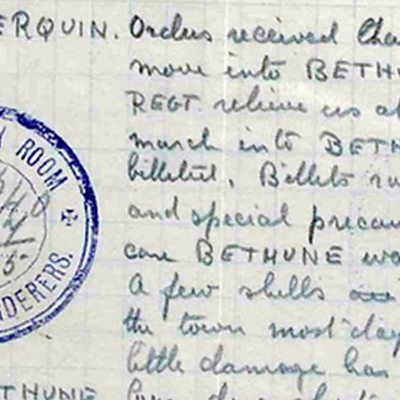 ERQUIN. Orders received tha
move into BETHU
REGT relieve us a
march into BETH
billeted. Billets
and special precau
case BETHUNE wa
A few shells
the town most day
little damage has
ETHUNE
ROOM
NDERERS.